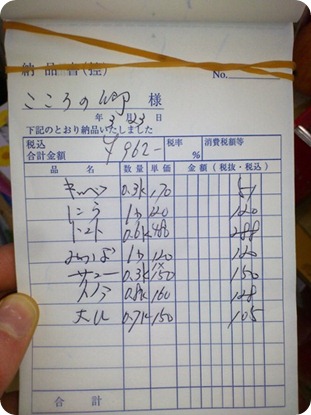 納品書(控)
No.
こころの郷 様
年 3/23 日
下記のとおり納品いたしました
税込合計金額 ¥962- 税率 % 消費税額等
品名 数量 単価 金額(税抜・税込)
キャベツ 0.3K 170 51
にら 1わ 120 120
トマト 0.6K 480 288
みつば 1わ 120 120
0.3K 150 150
0.8K 160 128
大根 0.7K 150 105
合計